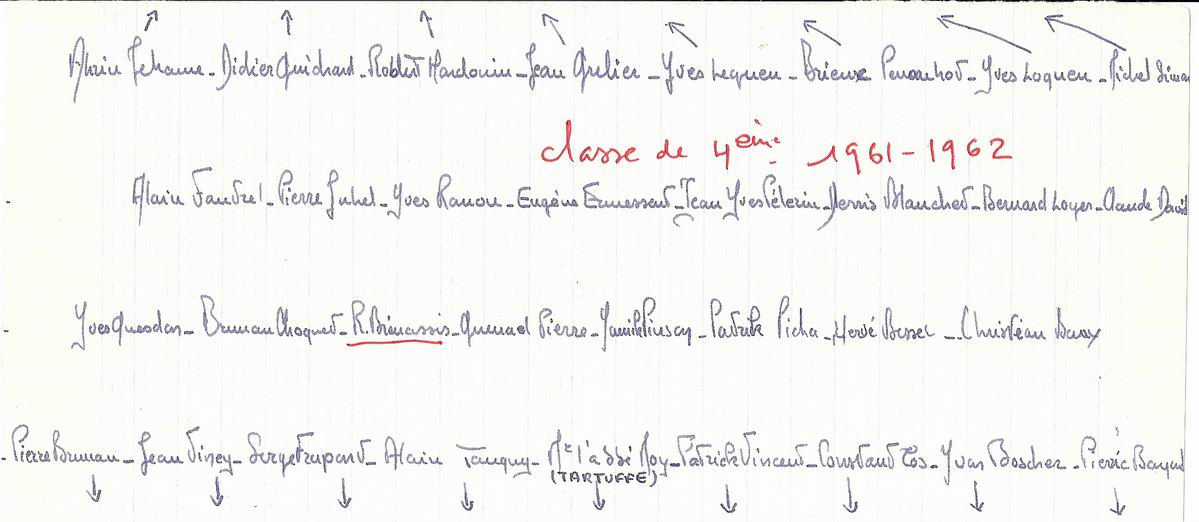 Alain Jehanne - Didier Guichard - Robert Hardouin - Jean Grelier - Yves Lequen - Brieux Penanhoat - Yves Loquen - Michel Simon
classe de 4ème 1961-1962
Alain Faudrel - Pierre Juhel - Yves Ramon - Eugène Ermessent - Jean Yves Pélerin - Denis Blanchet - Bernard Loyer - Claude David
Yves Quesdon - Bruman Choquet - R. Brémassis - Quemael Pierre - Yannik - Patrik Picha - Hervé Bessec - Christian Baux
Pierre Bruman - Jean Viney - Serge Frapart - Alain Tanguy - Mr l'abbé Moy - Patrick Vincent - Constant Cos - Yvan Boscher - Pierric
(TARTUFFE)